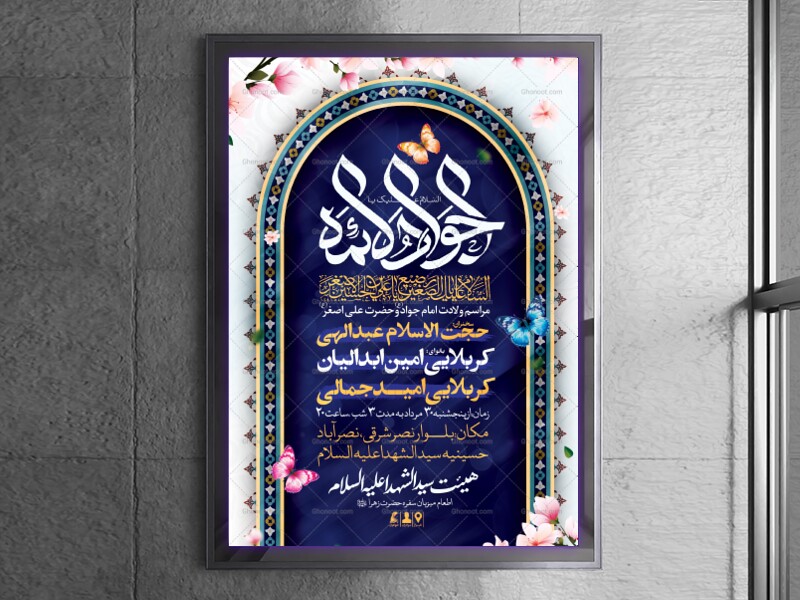 السلام علیک یا
جواد الائمه
السلام علیک یا باب الصغیر رضیع یا علی بن الحسین الاصغر
مراسم ولادت امام جواد و حضرت علی اصغر
سخنران:
حجت الاسلام عبدالهی
بانوای:
کربلایی امین ابدالیان
کربلایی امید جمالی
زمان: از پنجشنبه ۳۰ مرداد به مدت ۳ شب، ساعت ۲۰
مکان: بلوار نصر شرقی، نصرآباد
حسینیه سیدالشهدا علیه السلام
هیئت سیدالشهدا علیه السلام
اطعام میزبان سفره حضرت زهرا
Ghonoot.com